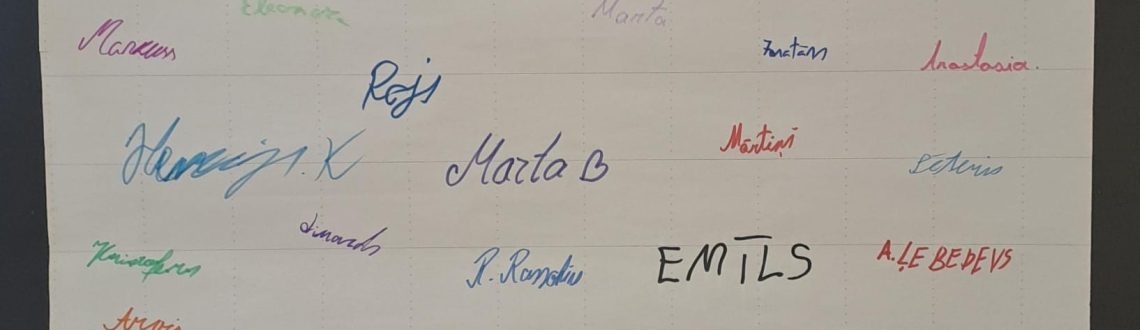 Eleonora
Marta
Markuss
Jonatāns
Anastasia.
Rojs
Henrijs. K
Marta B
Mārtiņš
Pēteris
Linards
Kristofers
EMĪLS
A.ĻEBEDEVS